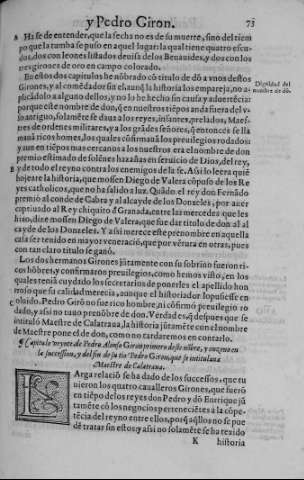 y Pedro Giron. 73
A Ha se de entender, que la fecha no es de su muerte, sino del tiem
po que la tumba se puso en aquel lugar: la qual tiene quatro escu-
dos, dos con leones listados deuisa de los Benauides, y dos con los
tres girones de oro en campo colorado.
En estos dos capitulos he nõbrado cõ titulo de dõ a vnos destos
Girones, y al comẽdador sin el, aunq̃ la historia los empareja, no a-
plicãdolo a alguno dellos, y no lo he hecho sin causa y aduertẽcia:
porque este nombre de don, q̃ en nuestros tiẽpos anda fuera del v-
so antiguo, solamẽte se daua a los reyes, infantes, prelados, Maes-
tres de ordenes militares, y a los grãdes señores, q̃ entonces se lla
mauã ricos homes, los quales cõfirmauã los preuilegios rodados:
y aun en tiẽpos mas cercanos a los nuestros era el nombre de don
premio estimado de solẽnes hazañas en seruicio de Dios, del rey,
B y de todo el reyno contra los enemigos de la fe. Assi lo leera quiẽ
hojeare la historia, que mossen Diego de Valera cõpuso de los Re
yes catholicos, que no ha salido a luz. Quãdo el rey don Fernãdo
premiò al conde de Cabra y al alcayde de los Donzeles, por auer
captiuado al Rey chiquito d'Granada, entre las mercedes que les
hizo, dize mossen Diego de Valera, que fue dar titulo de don al al
cayde de los Donzeles. Y assi merece este prenombre en aquella
casa ser tenido en mayor veneraciõ, que por vẽtura en otras, pues
con tan claro titulo se ganò.
Los dos hermanos Girones jũtamente con su sobrino fueron ri-
cos hõbres, y confirmaron preuilegios, como hemos visto, en los
quales tenia cuydado los secretarios de ponerles el apellido hon
roso que su calidad merecia, aunque el historiador lo pusiesse en
C oluido. Pedro Girõ no fue rico hombre, ni cõfirmò preuilegio ro
dado, y assi no tuuo prenõbre de don. Verdad es, q̃ despues que se
intitulò Maestre de Calatraua, la historia jũtamẽte con el nombre
de Maestre pone el de don, como no tardaremos en contarlo.
¶ Capitulo veynte de Pedro Alonso Giron primero deste nõbre, y vnzeno en
la successsion, y del fin de su tio Pedro Giron, que se intitulaua
Maestre de Calatraua.
LArga relaciõ se ha dado de los successos, que tu
uieron los quatro caualleros Girones, que fuerõ
en tiẽpo de los reyes don Pedro y dõ Enrique jũ
tamẽte cõ los negocios pertenecietẽs à la cõpe-
tẽcia del reyno entre ellos, porq̃ aq̃llos no se pue
dẽ tratar sin estos: y assi no solamẽte se ha texido
K historia
Dignidad del
nombre de dõ.